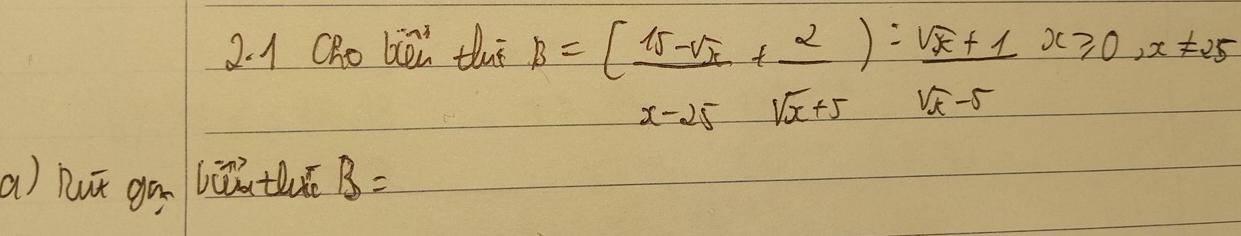 2.1 Cho biểu thức B = ( 15-√x / x-25 + 2 / √x+5 ) : √x+1 / √x-5 x ≥ 0, x ≠ 25
a) Rút gọn biểu thức B =